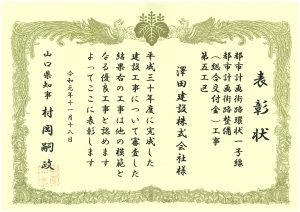 表彰状
都市計画街路環状一号線
都市計画街路整備
（総合交付金）工事
第五工区
澤田建設株式会社様
平成三十年度に完成した
建設工事について審査した
結果右の工事は他の模範と
なる優良工事と認めます
よってここに表彰します
令和元年十一月十八日
山口県知事 村岡嗣政